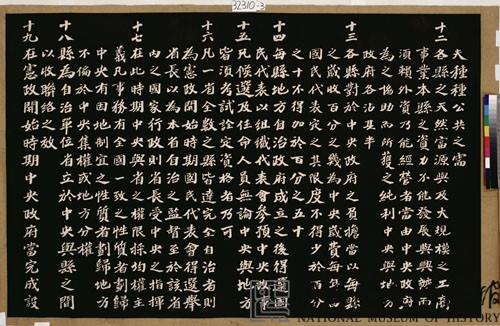 32310-3
大種種公共之需
十二各縣之天然富源與及大規模之工商
事業本縣之資力不能發展與興辦而
須賴外資乃能經營者當由中央政府
為之協助而所獲之純利中央與地方
政府各沾其半
十三各縣對於中央政府之負擔當以每縣
之歲收百分之幾為中央歲費每年由
國民代表定之其限度不得少於百分
之十不得加於百分之五十
十四每縣地方自治政府成立之後得選國
民代表以組織代表會參預中央政事
十五凡候選及任命人員無論中央與地方
皆須考試詮定資格者乃可
十六凡一省全數之縣皆達完全自治者則
為憲政開始時期國民代表會得選舉
省長以為本省自治之監督至於該省
內之國家行政則省長受中央之指揮
十七在此時期中央與省之權限採均權主
義凡事務有全國一致之性質者劃歸
中央有因地制宜之性質者劃歸地方
不偏於中央集權或地方分權
十八縣為自治單位省立於中央與縣之間
以收聯絡之效
十九在憲政開始時期中央政府當完成設
NATIONAL MUSEUM OF HISTORY